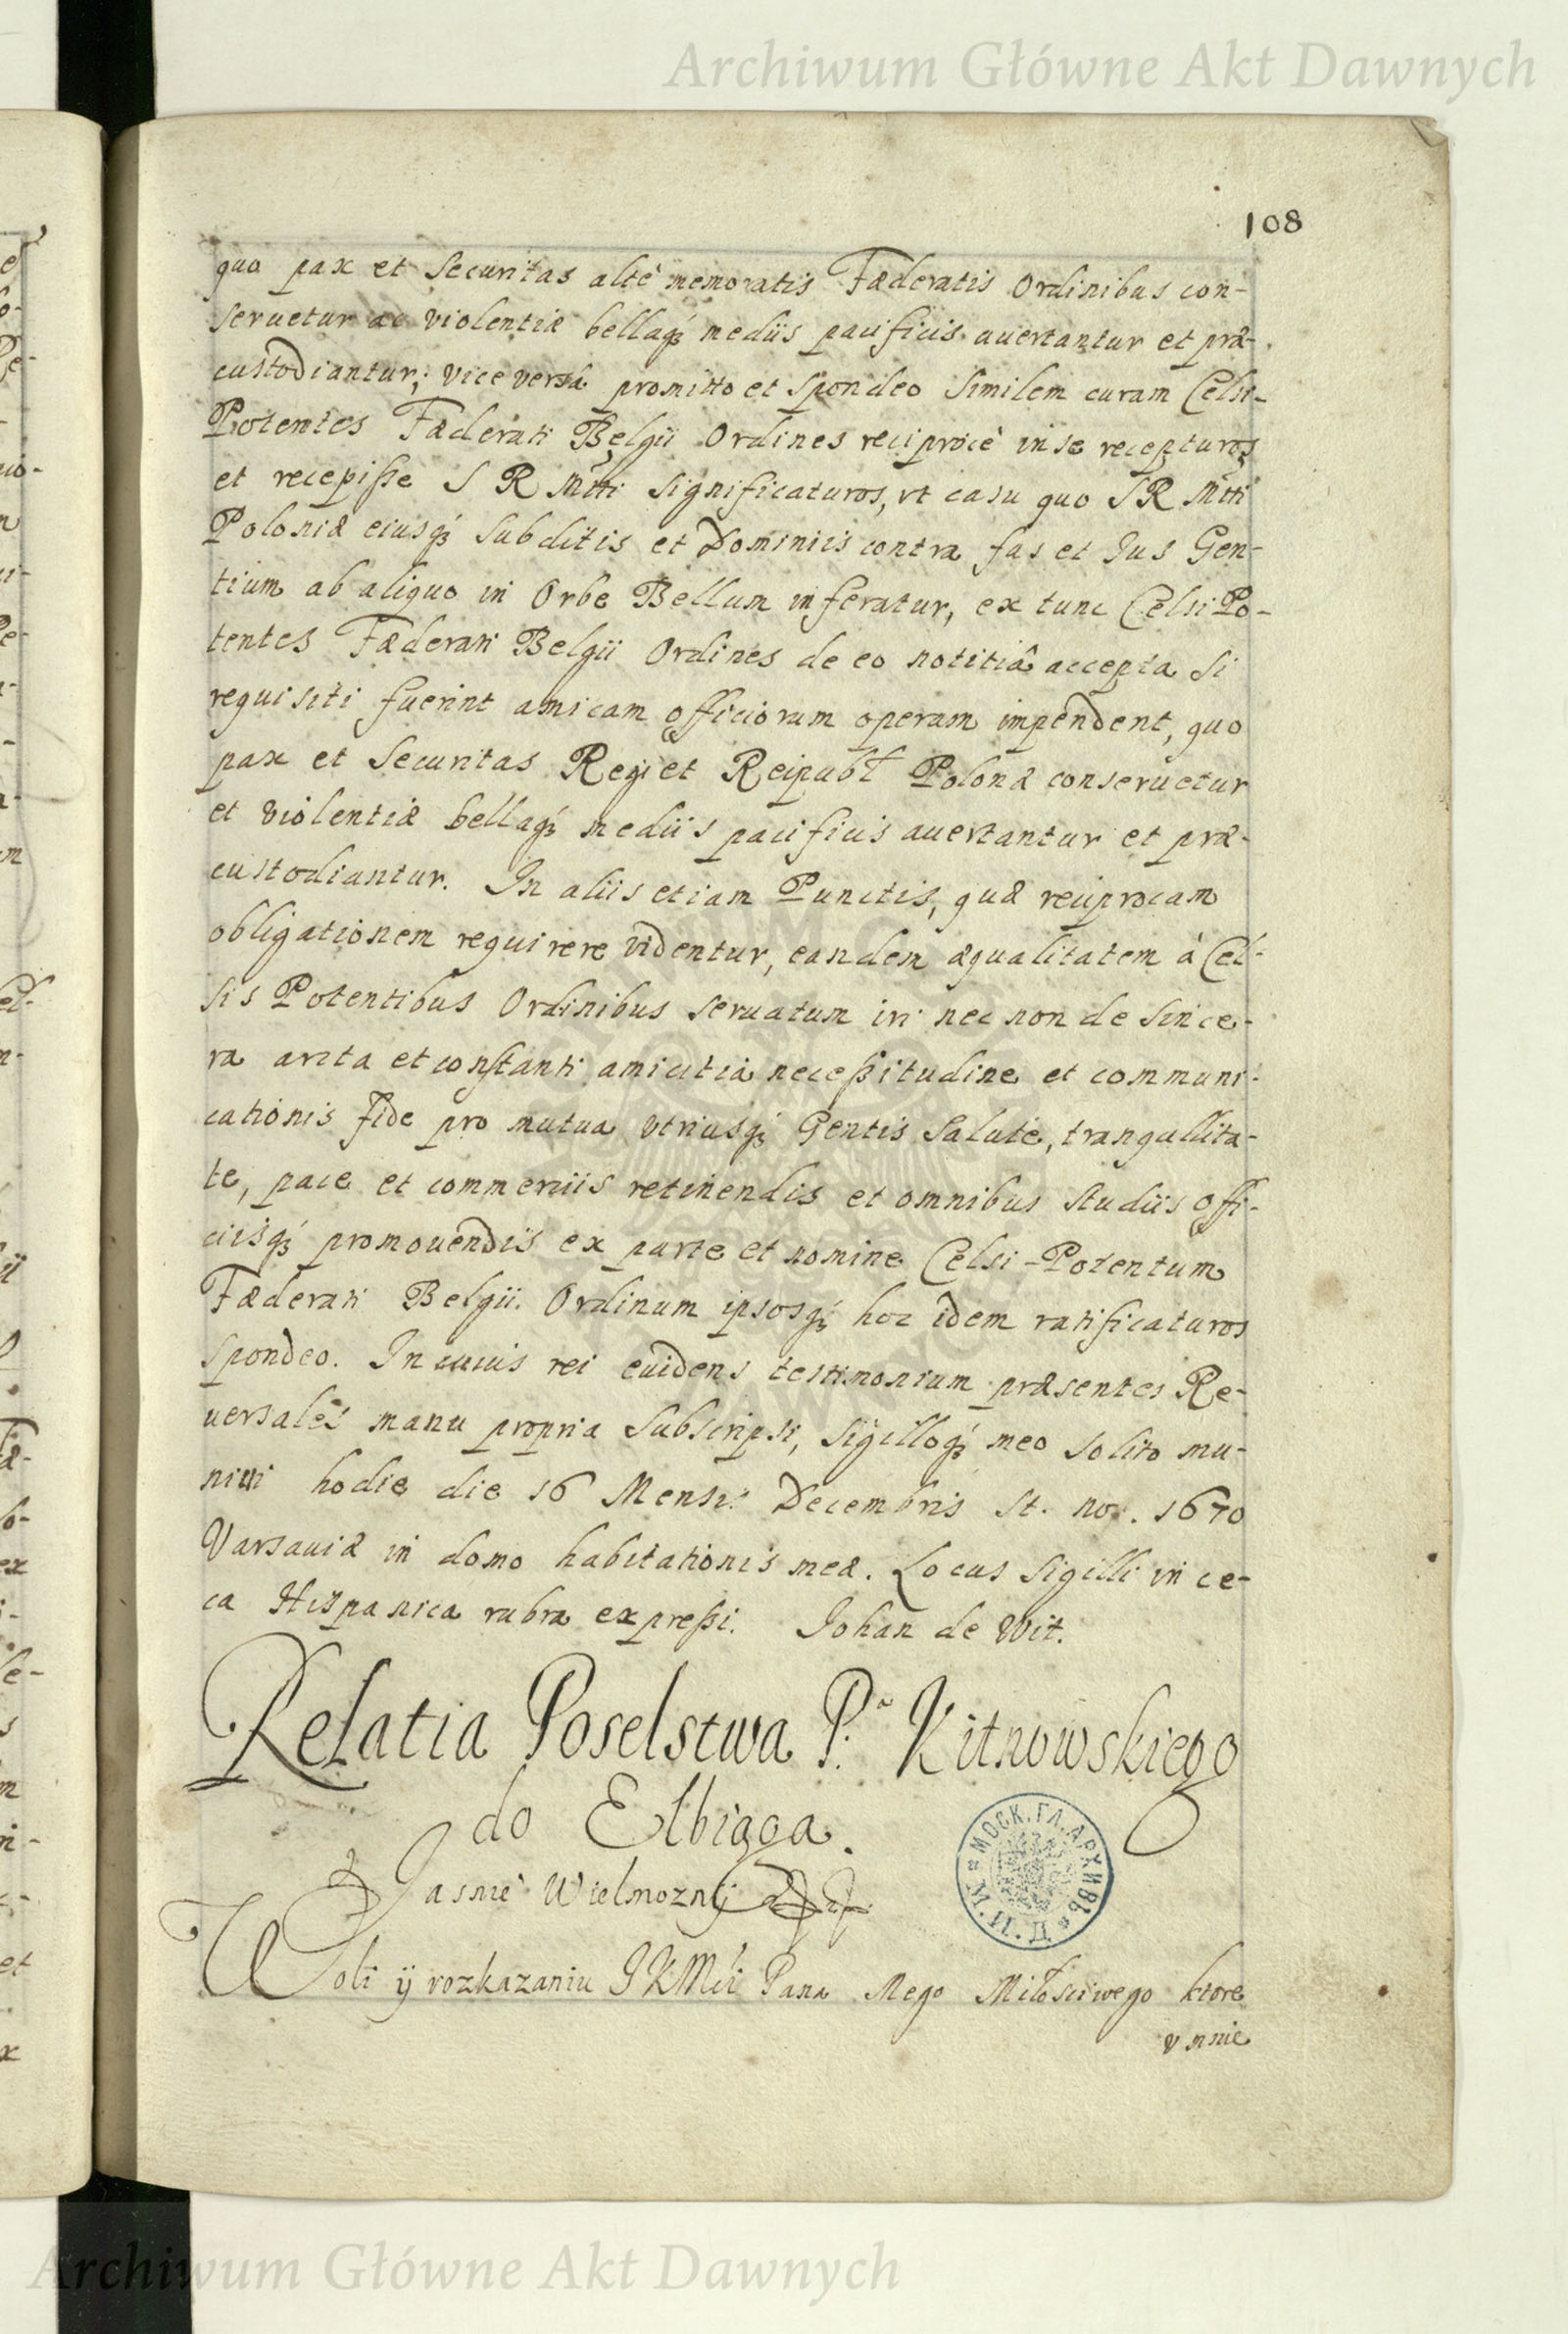 Archiwum Główne Akt Dawnych
108
quo pax et Securitas altè memoratis Fæderatis Ordinibus con-
seruetur ac violentiæ bellaq́ʒ mediis pacificis auertantur et præ-
custodiantur; vice versâ promitto et spondeo similem curam Celsi-
Potentes Fæderati Belgii Ordines reciprocè in se recepturos
et recepisse S R Mtti significaturos, vt casu quo S R Mtti
Poloniæ eiusq́ʒ subditis et Dominiis contra fas et Jus Gen-
tium ab aliquo in Orbe Bellum inferatur, ex tunc Celsi Po-
tentes Fæderati Belgii Ordines de eo notitiâ accepta si
requisiti fuerint amicam officiorum operam impendent, quo
pax et Securitas Regi et Reipubł Polonæ conseruetur
et violentiæ bellaq́ʒ mediis pacificis auertantur et præ-
custodiantur. In aliis etiam Punctis, quæ reciprocam
obligationem requirere videntur, eandem æqualitatem à Cel-
sis Potentibus Ordinibus seruatum iri nec non de since-
ra arcta et constanti amicitia necessitudine et communi-
cationis fide pro mutua vtriusq́ʒ Gentis Salute, tranquillita-
te, pace et commerciis retinendis et omnibus studiis offi-
ciisq́ʒ promouendis ex parte et nomine Celsi-Potentum
Fæderati Belgii Ordinum ipsosq́ʒ hoc idem ratificaturos
spondeo. In cuius rei euidens testimonium præsentes Re-
uersales manu propria subscripsi, sigilloq́ʒ meo solito mu-
niui hodie die 16 Mensis Decembris St. no. 1670
Varsauiæ in domo habitationis meæ. Locus Sigilli in ce-
ra Hispanica rubra expressi. Johan de Wit.
Relatia Poselstwa P.ª Kitnowskiego
do Elbiąga.
Jasnie Wielmozny
Woli ÿ rozkazaniu J K Mći Pana Mego Miłosciwego ktore
v mnie
М.Г.А.М.И.Д. МОСК. ГЛ. АРХИВЪ
Archiwum Główne Akt Dawnych